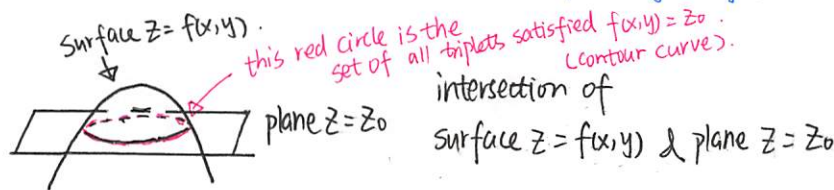 surface z=f(x,y).
this red circle is the
set of all triplets satisfied f(x,y)=z₀.
(contour curve).
plane z=z₀
intersection of
surface z=f(x,y) & plane z=z₀